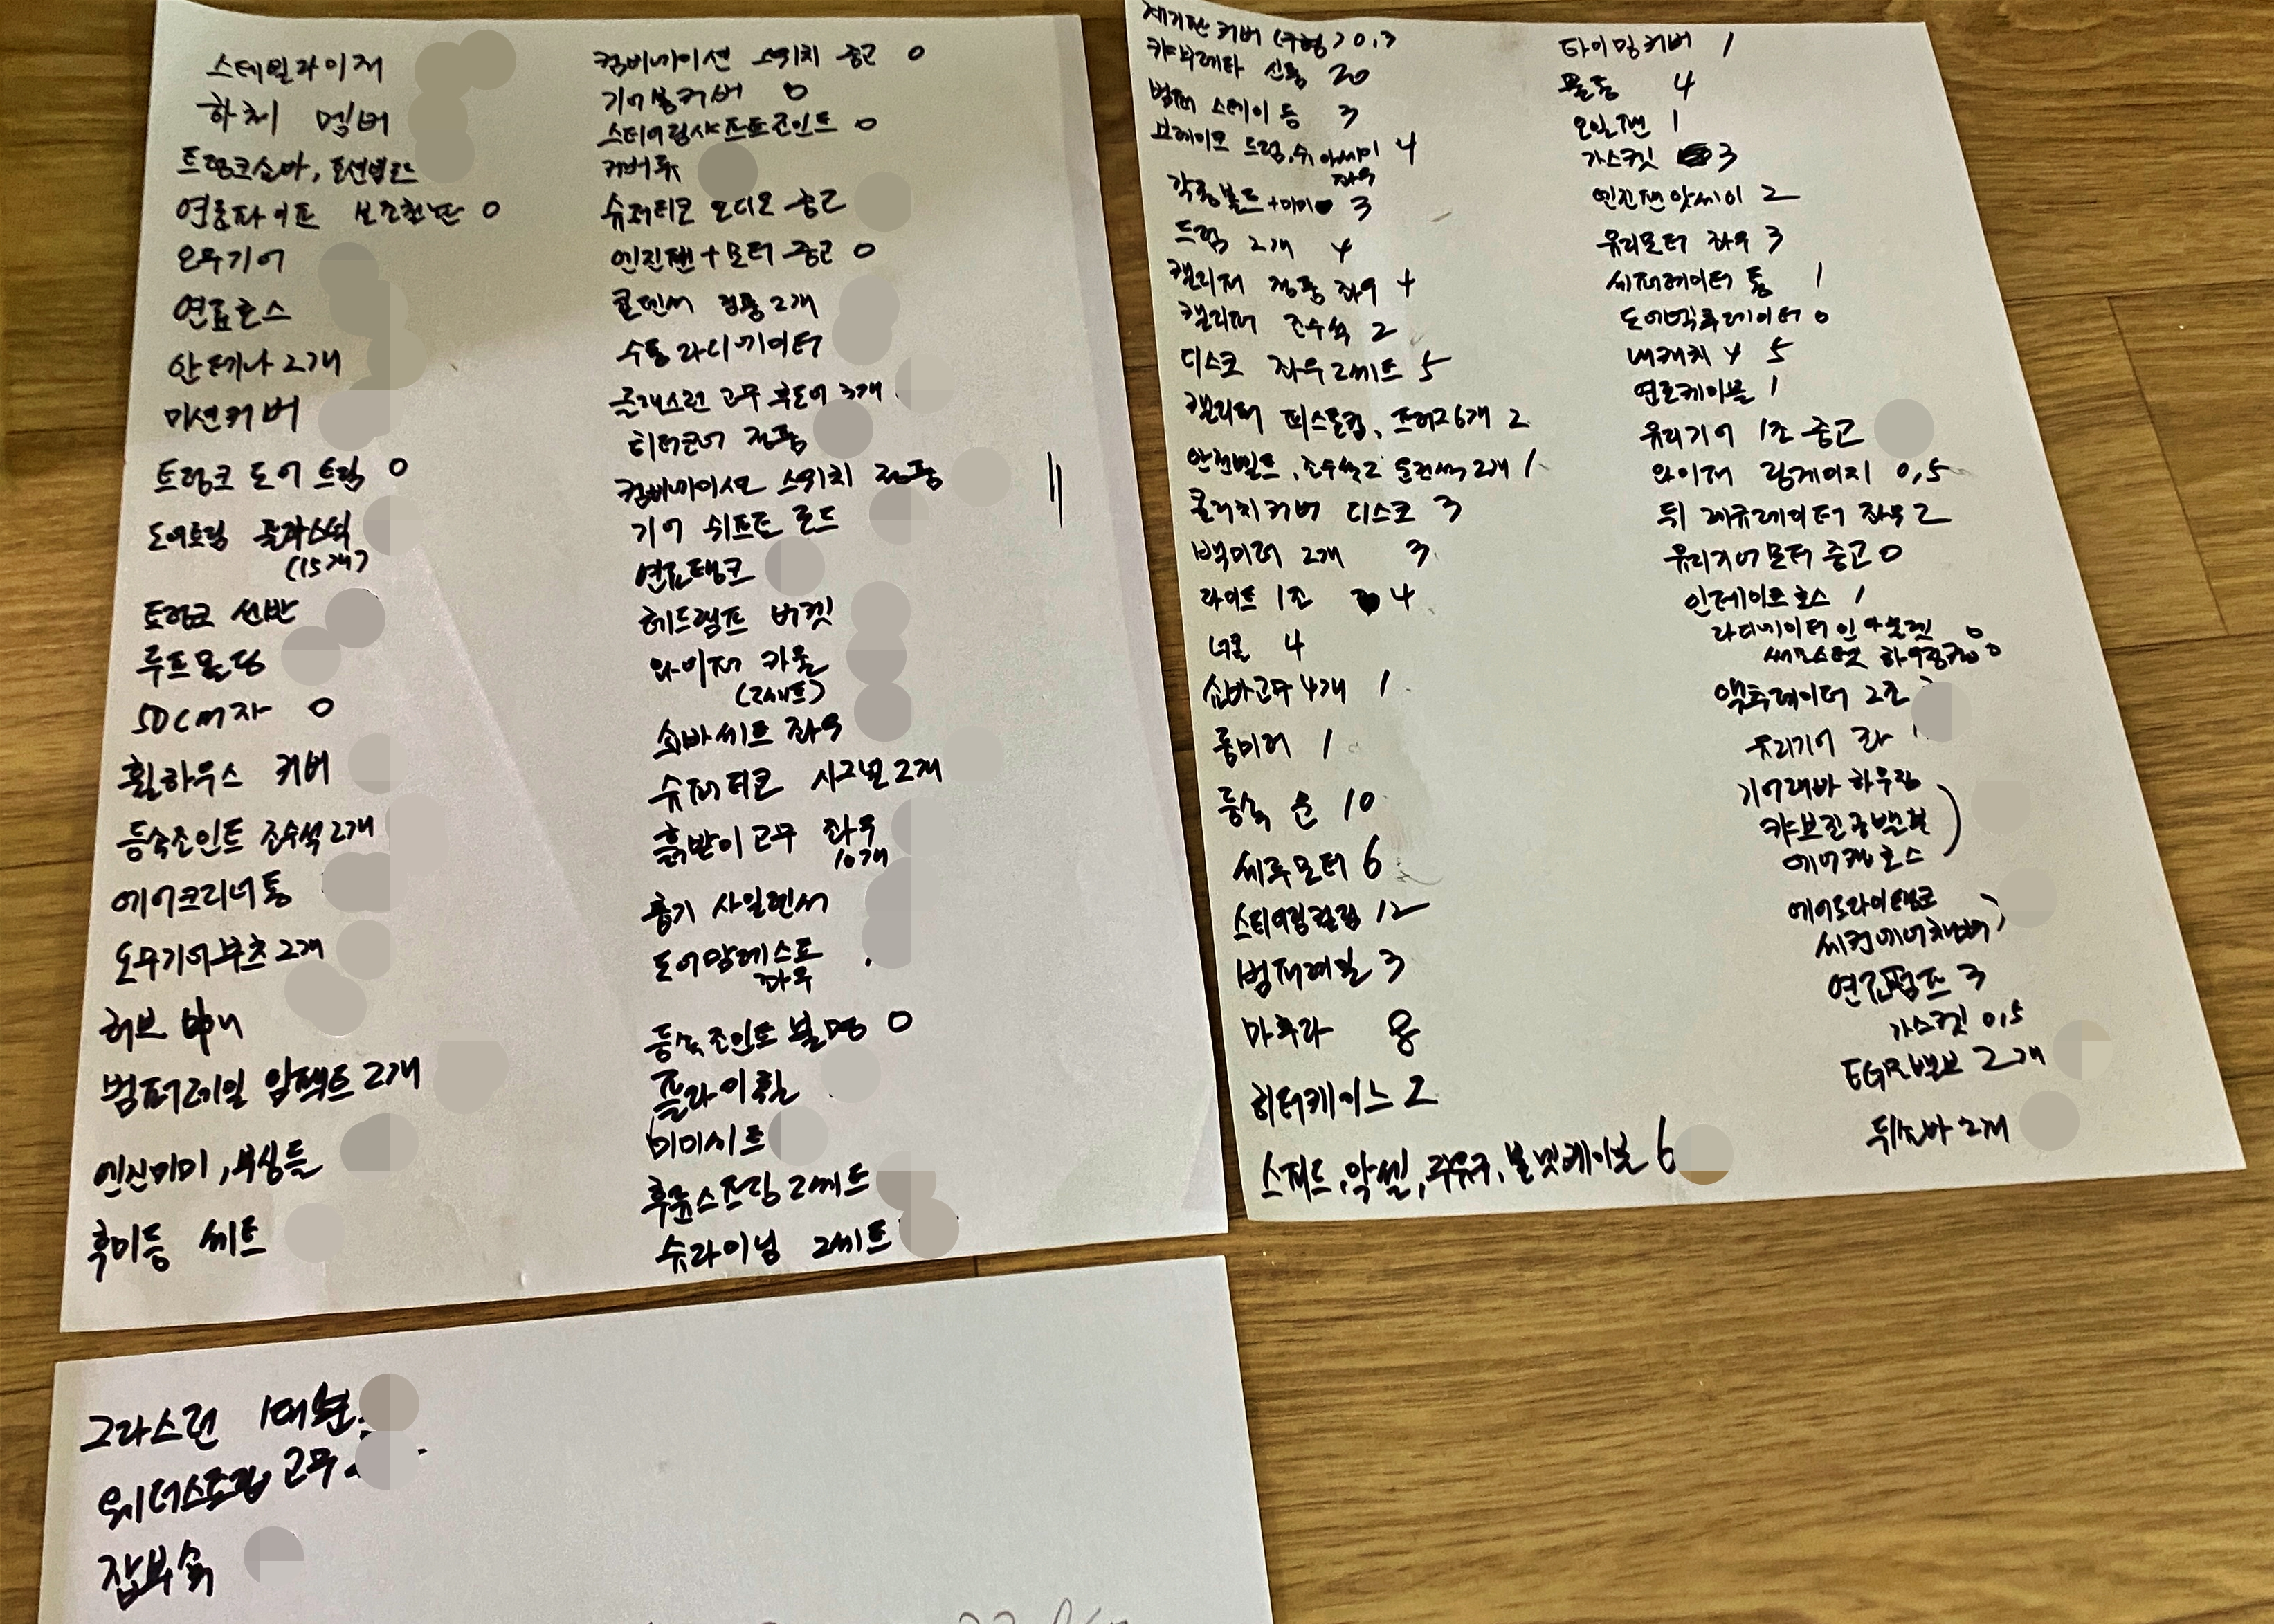 스테빌라이저
하체 멤버
트렁크쇼바, 토션빔로드
연료파이프 보조환단 0
오무기어
연료호스
안테나 2개
미션커버
트렁크 도어 트림 0
도어트림 플라스틱
(15개)
트렁크 선반
루프 몰딩
50cm자 0
휠하우스 커버
등속조인트 조수석 2개
에어크리너통
오무기어부츠 2개
허브
범퍼레일 임팩트 2개
엔진미미, 부싱들
후미등 세트
컴비네이션 스위치 중고 0
기어봉커버 0
스티어링샤프트조인트 0
커버류
슈퍼티코 오디오 중고
엔진팬+모터 중고 0
콘덴서 정품 2개
수동 라디에이터
글래스런 고무 후도어 3개
히터코어 정품
컴비네이션 스위치 정품
기어 쉬프트 로드
연료탱크
헤드램프 버켓
와이퍼 카울
(2세트)
쇼바세트 좌우
슈퍼티코 시그널 2개
흙받이고무 좌우
10개
흡기 사일렌서
도어암레스트
좌우
등속조인트 불명 0
플라이휠
미미세트
후륜스프링 2세트
슈라이닝 2세트
계기판 커버 (구형) 0,3
캬브레타 신품 20
범퍼 스테이 등 3
브레이크 드럼, 슈 아세이 4
좌우
각종볼트+미미 3
드럼 2개 4
캘리퍼 정품 좌우 4
캘리퍼 조수석 2
디스크 좌우 2세트 5
캘리퍼 피스톤킷, 프허거 6개 2
안전벨트, 조수석2 운전석 2개 1
클러치커버 디스크 3
백미러 2개 3
라이트 1조 4
너클 4
쇼바고무 4개 1
룸미러 1
등속 운 10
세루모터 6
스티어링컬럼 12
범퍼레일 3
마후라 8
히터케이스 2
스피드, 악셀, 주유구, 본넷케이블 6
타이밍커버 1
물통 4
오일팬 1
가스켓 3
엔진팬앗세이 2
유리모터 좌우 3
세퍼레이터 통 1
도어액츄레이터 0
내캐치 4 5
연료케이블 1
유리기어 1조 중고
와이퍼 링게이지 0,5
뒤 레귤레이터 좌우 2
유리기어모터 중고 0
인테이크호스 1
라디에이터 인 아웃렛 0
써모스탯 하우징 0
액츄레이터 2조
유리기어 좌
기어레바 하우징
캬브진공밸브
에어캔호스
에어드라이탱크
씨컨에어챔버
연료펌프 3
가스켓 0,5
EGR밸브 2개
뒤쇼바 2개
그라스런 1대분
웨더스트립 고무
잡부속